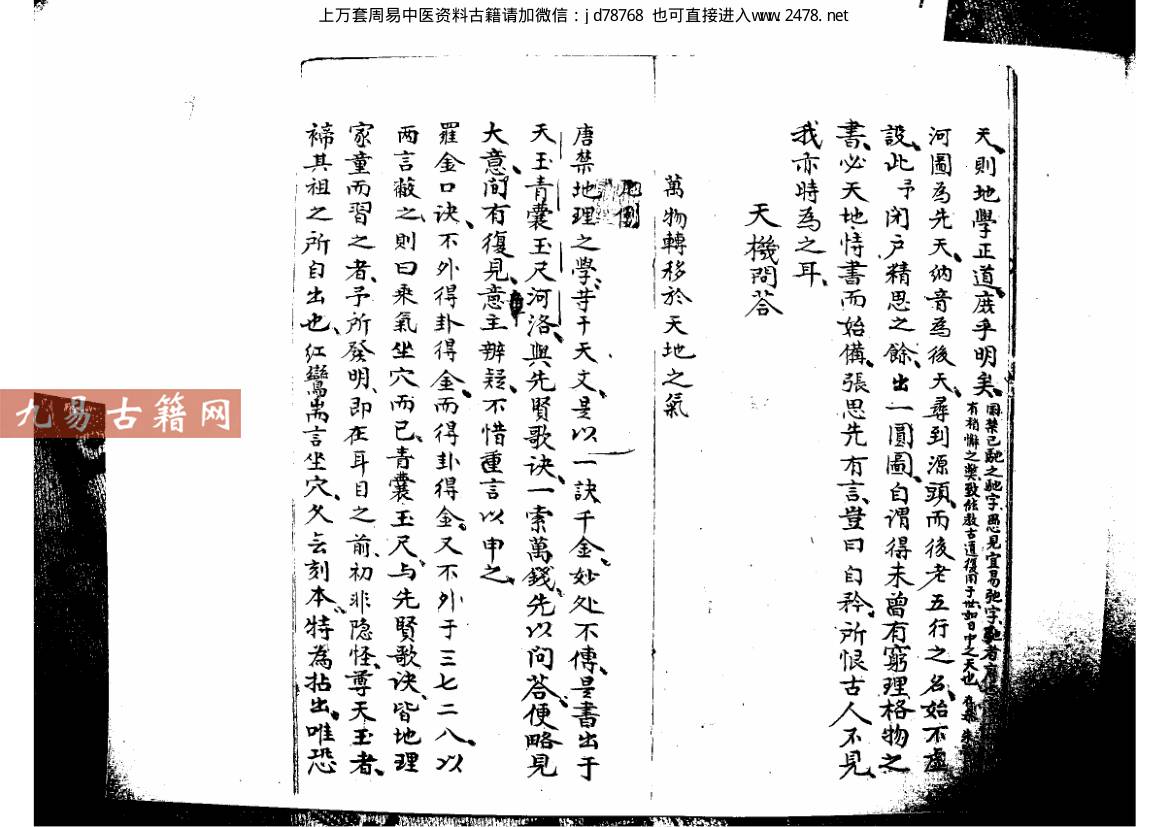 上万套周易中医资料古籍请加微信：jd78768 也可直接进入www.2478.net
天則地學正道庶乎明矣
因禁已馳之馳字愚見宜易弛字
有稍懈之獘致能敖古道復用于世如日中之天也
河圖為先天納音為後天尋到源頭而後老五行之名始不虛
設此予閉户精思之餘出一圓圖自謂得未曾有窮理格物之
書必天地恃書而始備張思先有言豈曰自矜所恨古人不見
我亦時為之耳
天機問答
萬物轉移於天地之氣
唐禁地理之學芽于天文是以一訣千金妙处不傳是書出于
天玉青囊玉尺河洛與先賢歌诀一索萬錢先以问荅便略見
大意间有復見意主辨疑不惜重言以申之
羅金口诀不外得卦得金而得卦得金又不外于三七二八以
两言蔽之則曰乘氣坐穴而已青囊玉尺与先賢歌诀皆地理
家童而習之者予所發明即在耳目之前初非隐怪尊天玉者
禘其祖之所自出也红鸞嵩言坐穴久云刻本特為拈出唯恐
九易古籍网